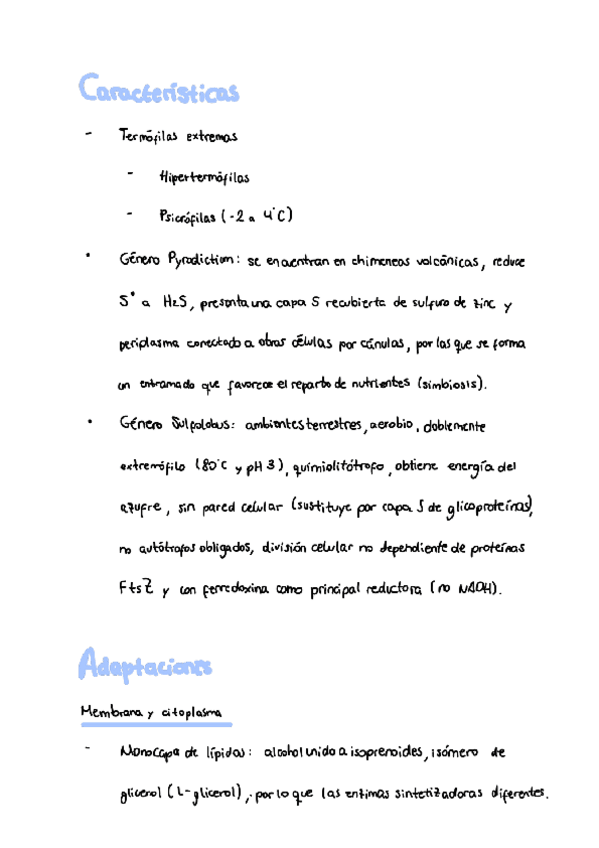 Características
- Termófilas extremas
- Hipertermófilas
- Psicrófilas (-2 a 4°C)
• Género Pyrodictium: se encuentran en chimeneas volcánicas, reduce
S° a H2S, presenta una capa S recubierta de sulfuro de zinc y
periplasma conectado a otras células por cánulas, por las que se forma
un entramado que favorece el reparto de nutrientes (simbiosis).
• Género Sulfolobus: ambientes terrestres, aerobio, doblemente
extremófilo (80°C y pH 3), quimiolitótrofo, obtiene energía del
azufre, sin pared celular (sustituye por capa S de glicoproteínas),
no autótrofos obligados, división celular no dependiente de proteínas
FtsZ y con ferredoxina como principal reductora (no NADH).
Adaptaciones
Membrana y citoplasma
- Monocapa de lípidos: alcohol unido a isoprenoides, isómero de
glicerol (L-glicerol), por lo que las enzimas sintetizadoras diferentes.